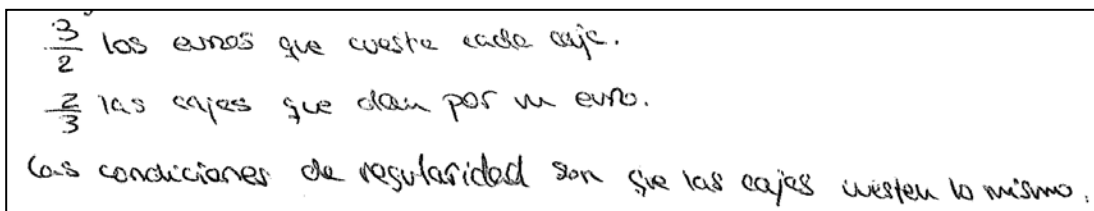 3/2 los euros que cuesta cada caja.
2/3 las cajas que dan por un euro.
Las condiciones de regularidad son que las cajas cuesten lo mismo.